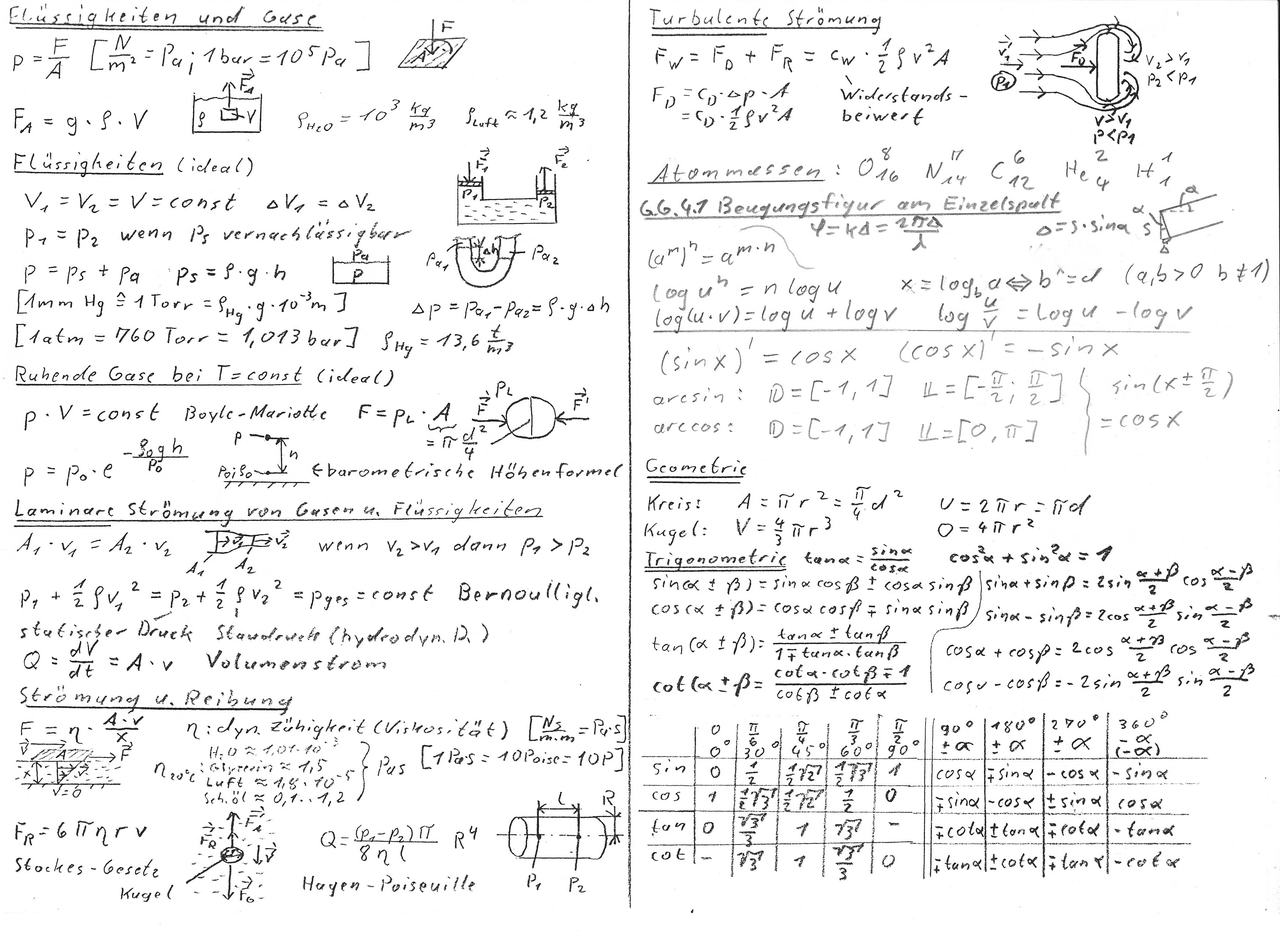 Flüssigkeiten und Gase
p = F/A [N/m² = Pa; 1bar = 10⁵ Pa]
F
A
F_A = g · ρ · V
F_A
ρ
V
ρ_H2O = 10³ kg/m³ ρ_Luft ≈ 1,2 kg/m³
Flüssigkeiten (ideal)
V₁ = V₂ = V = const ΔV₁ = ΔV₂
F₁ F₂
p₁ p₂
p₁ = p₂ wenn p_s vernachlässigbar
p = p_s + p_a p_s = ρ · g · h
p_a
p
p_a1 Δh p_a2
[1mm Hg ≙ 1 Torr = ρ_Hg · g · 10⁻³ m] Δp = p_a1 − p_a2 = ρ · g · Δh
[1atm = 760 Torr = 1,013 bar] ρ_Hg = 13,6 t/m³
Ruhende Gase bei T = const (ideal)
p · V = const Boyle-Mariotte F = p_L · A
= π d²/4
p_L
F F'
p = p₀ · e^(−ρ₀gh/p₀)
p
h
p₀; ρ₀
barometrische Höhenformel
Laminare Strömung von Gasen u. Flüssigkeiten
A₁ · v₁ = A₂ · v₂ wenn v₂ > v₁ dann p₁ > p₂
v₂
A₁ A₂
p₁ + 1/2 ρ v₁² = p₂ + 1/2 ρ v₂² = p_ges = const Bernoulligl.
statischer Druck Staudruck (hydrodyn. D.)
Q = dV/dt = A · v Volumenstrom
Strömung u. Reibung
F = η · A·v/x η: dyn. Zähigkeit (Viskosität) [Ns/m·m = Pa·s]
v A F
x
v=0
η_20°C
H₂O ≈ 1,01·10⁻³
Glyzerin ≈ 1,5
Luft ≈ 1,8·10⁻⁵
Sch.öl ≈ 0,1..1,2
Pas [1Pas = 10Poise = 10P]
F_R = 6 π η r v
Stockes-Gesetz
Kugel
F_A
F_R
v
F_G
Q = (p₁−p₂)π / 8 η l R⁴
Hagen-Poiseuille
l R
p₁ p₂
Turbulente Strömung
F_W = F_D + F_R = c_W · 1/2 ρ v² A
F_D = c_D · Δp · A Widerstands-
= c_D · 1/2 ρ v² A beiwert
v₁
p₁
F_D
v₂ > v₁
p₂ < p₁
v > v₁
p < p₁
Atommassen: O 8 16 N 7 14 C 6 12 He 2 4 H 1 1
6.6.4.1 Beugungsfigur am Einzelspalt
φ = kΔ = 2πΔ/λ Δ = s · sinα
α
s
Δ
(aᵐ)ⁿ = a^(m·n)
log uⁿ = n log u x = log_b a ⇔ bˣ = a (a,b > 0 b ≠ 1)
log(u·v) = log u + log v log u/v = log u − log v
(sin x)' = cos x (cos x)' = −sin x
arcsin: 𝔻 = [−1, 1] 𝕃 = [−π/2; π/2] sin(x ± π/2)
arccos: 𝔻 = [−1, 1] 𝕃 = [0, π] = cos x
Geometrie
Kreis: A = π r² = π/4 d² U = 2 π r = π d
Kugel: V = 4/3 π r³ O = 4 π r²
Trigonometrie tanα = sinα/cosα cos²α + sin²α = 1
sin(α ± β) = sinα cosβ ± cosα sinβ sinα + sinβ = 2 sin (α+β)/2 cos (α−β)/2
cos(α ± β) = cosα cosβ ∓ sinα sinβ sinα − sinβ = 2cos (α+β)/2 sin (α−β)/2
tan(α ± β) = (tanα ± tanβ)/(1 ∓ tanα · tanβ) cosα + cosβ = 2cos (α+β)/2 cos (α−β)/2
cot(α ± β = (cotα · cotβ ∓ 1)/(cotβ ± cotα) cosα − cosβ = −2sin (α+β)/2 sin (α−β)/2
0 π/6 π/4 π/3 π/2 90° 180° 270° 360°
0° 30° 45° 60° 90° ±α ±α ±α −α (−α)
sin 0 1/2 1/2√2 1/2√3 1 cosα ∓sinα −cosα −sinα
cos 1 1/2√3 1/2√2 1/2 0 ∓sinα −cosα ±sinα cosα
tan 0 √3/3 1 √3 − ∓cotα ±tanα ∓cotα −tanα
cot − √3 1 √3/3 0 ∓tanα ±cotα ∓tanα −cotα